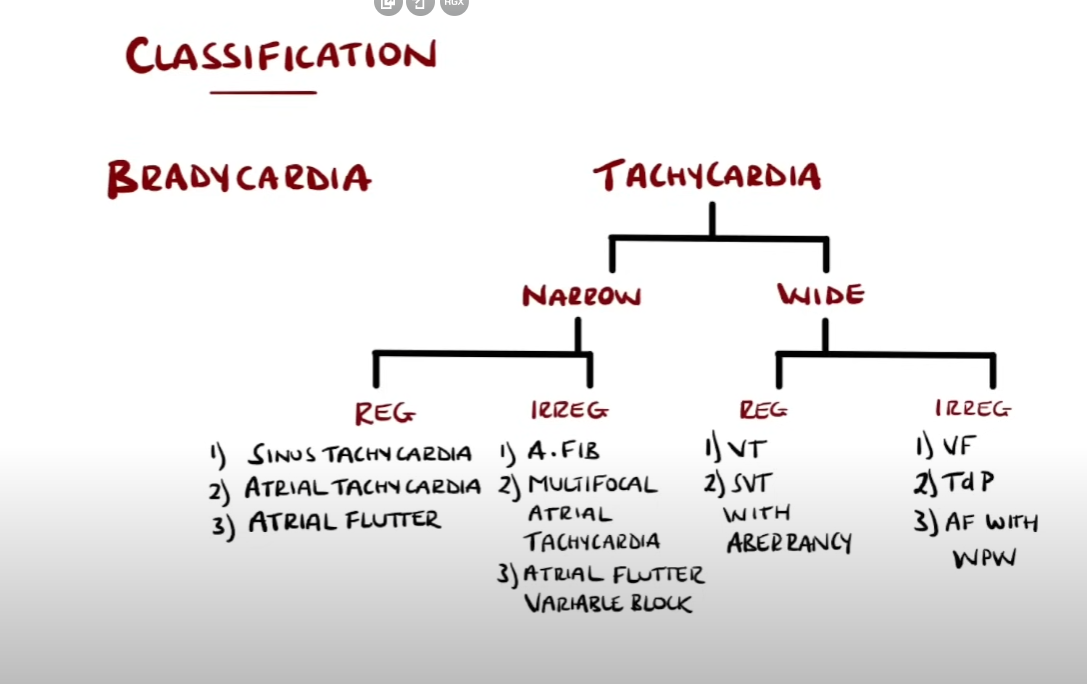 HGX
CLASSIFICATION
BRADYCARDIA
TACHYCARDIA
NARROW
WIDE
REG
IRREG
REG
IRREG
1) SINUS TACHYCARDIA
2) ATRIAL TACHYCARDIA
3) ATRIAL FLUTTER
1) A.FIB
2) MULTIFOCAL
ATRIAL
TACHYCARDIA
3) ATRIAL FLUTTER
VARIABLE BLOCK
1) VT
2) SVT
WITH
ABERRANCY
1) VF
2) TdP
3) AF WITH
WPW